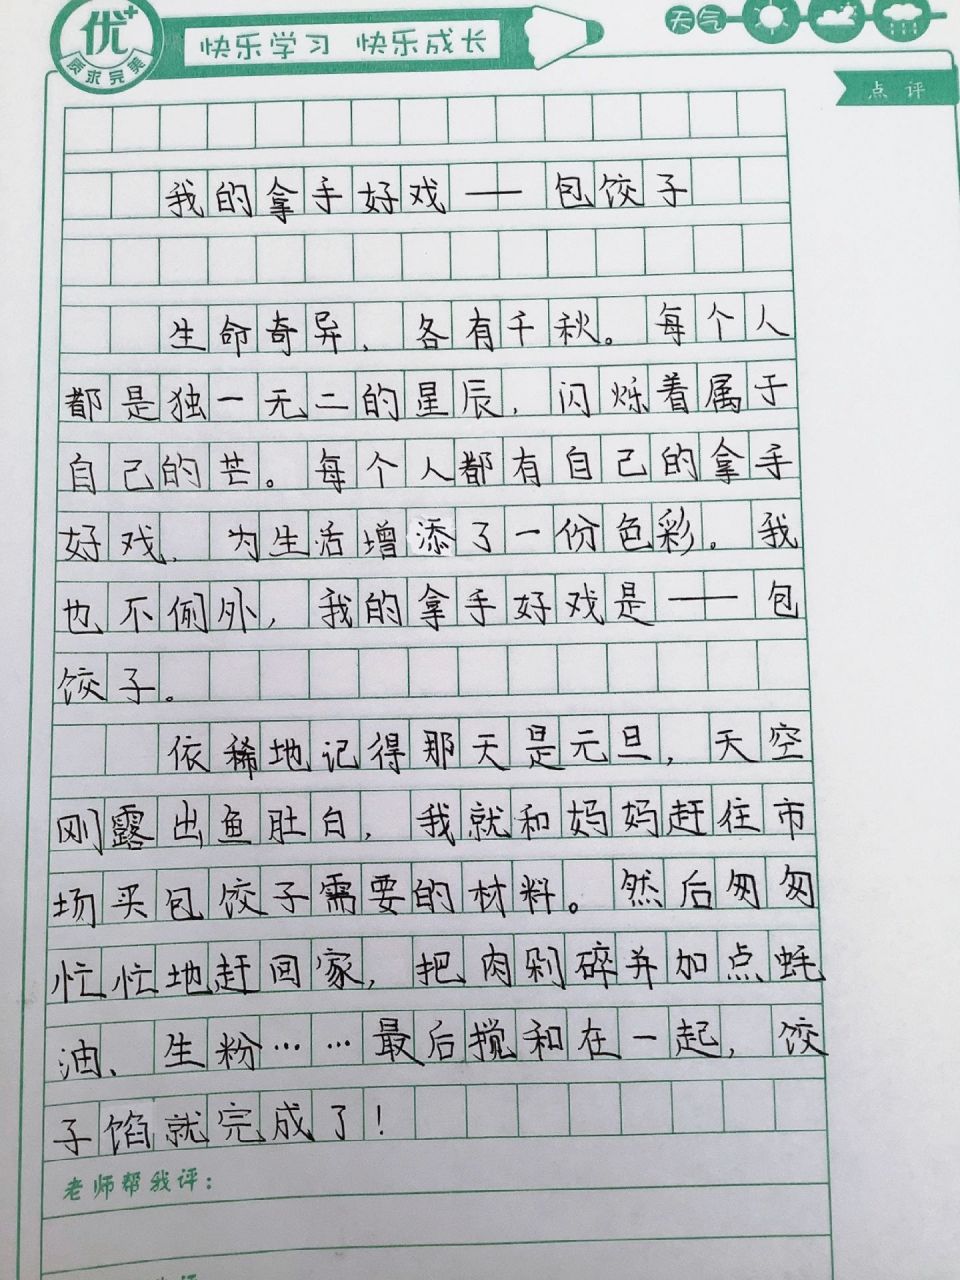 优+
质求完美
快乐学习 快乐成长
天气
点评
我的拿手好戏——包饺子
生命奇异，各有千秋。每个人
都是独一无二的星辰，闪烁着属于
自己的芒。每个人都有自己的拿手
好戏，为生活增添了一份色彩。我
也不例外，我的拿手好戏是——包
饺子。
依稀地记得那天是元旦，天空
刚露出鱼肚白，我就和妈妈赶往市
场买包饺子需要的材料。然后匆匆
忙忙地赶回家，把肉剁碎并加点蚝
油、生粉……最后搅和在一起，饺
子馅就完成了！
老师帮我评：